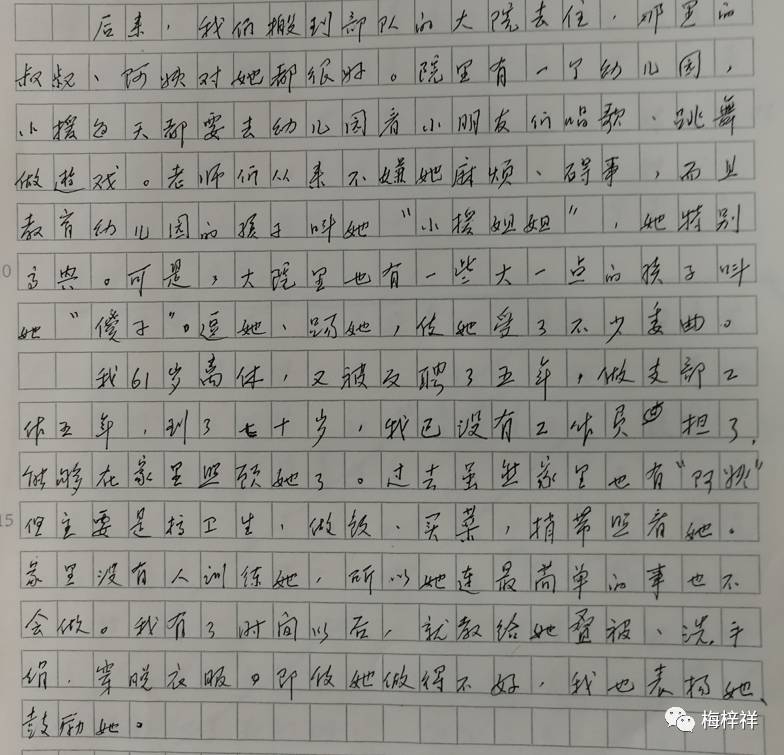 后来，我们搬到部队的大院去住，那里的
叔叔、阿姨对她都很好。院里有一个幼儿园，
小援每天都要去幼儿园看小朋友们唱歌、跳舞
做游戏。老师们从来不嫌她麻烦、碍事，而且
教育幼儿园的孩子叫她“小援姐姐”，她特别
高兴。可是，大院里也有一些大一点的孩子叫
她“傻子”。逗她、踢她，使她受了不少委曲。
我61岁离休，又被反聘了五年，做支部工
作五年，到了七十岁，我已没有工作负担了，
能够在家里照顾她了。过去虽然家里也有“阿姨”
但主要是搞卫生，做饭、买菜，捎带照看她。
家里没有人训练她，所以她连最简单的事也不
会做。我有了时间以后，就教给她叠被、洗手
绢、穿脱衣服。即使她做得不好，我也表扬她、
鼓励她。
0
15
梅梓祥